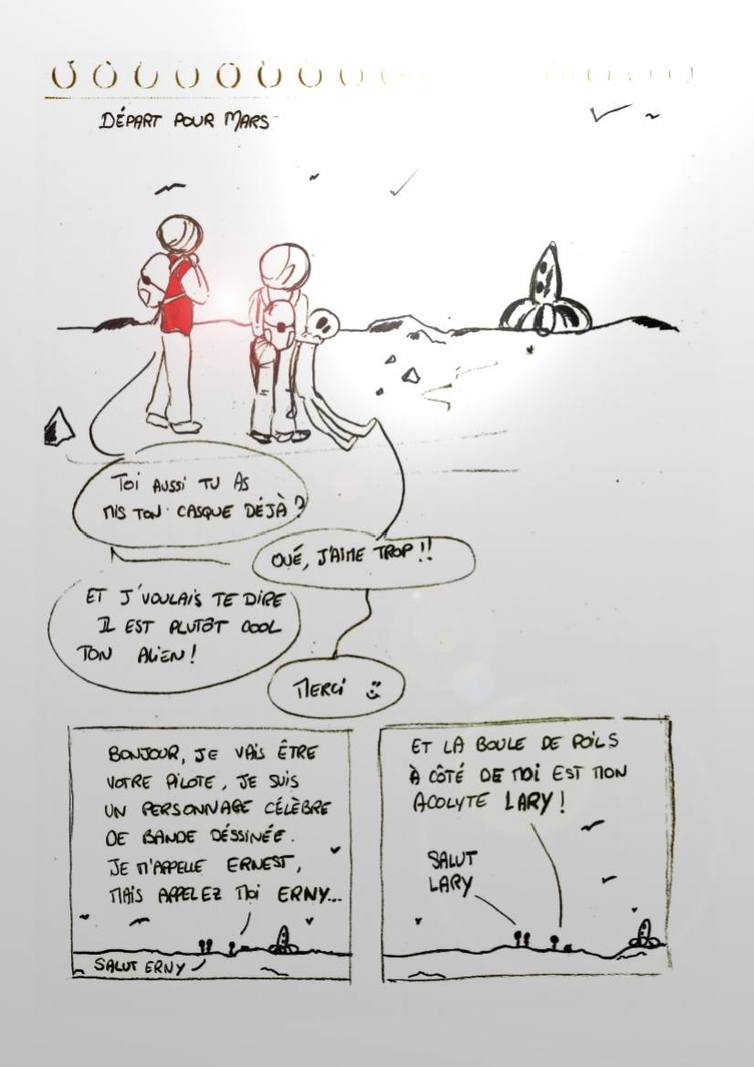 DÉPART POUR MARS
TOI AUSSI TU AS
MIS TON CASQUE DÉJÀ ?
OUÉ, J'AIME TROP !!
ET J'VOULAIS TE DIRE
IL EST PLUTÔT COOL
TON ALIEN !
MERCI :)
BONJOUR, JE VAIS ÊTRE
VOTRE PILOTE, JE SUIS
UN PERSONNAGE CÉLÈBRE
DE BANDE DÉSSINÉE.
JE M'APPELLE ERNEST,
MAIS APPELEZ MOI ERNY...
SALUT ERNY
ET LA BOULE DE POILS
À CÔTÉ DE MOI EST MON
ACOLYTE LARY !
SALUT
LARY